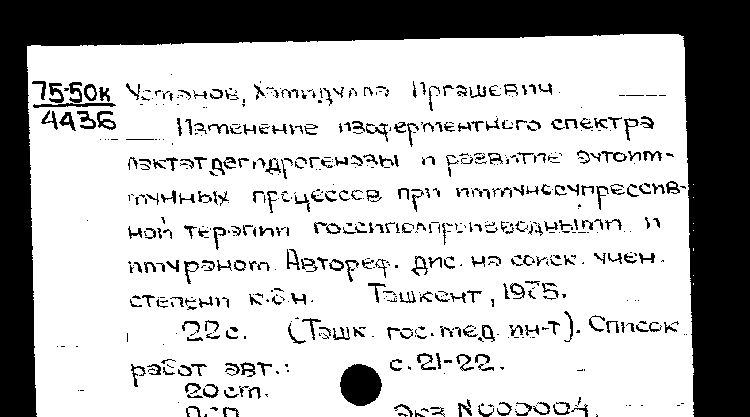 75-50к Усманов, Хамидулла Иргашевич.
4436 Изменение изоферментного спектра
лактатдегидрогеназы и развитие аутоим-
мунных процессов при иммуносупрессив-
ной терапии госсиполпроизводными и
имураном. Автореф. дис. на соиск. учен.
степени к.б.н. Ташкент, 1975.
22с. (Ташк. гос. мед. ин-т). Список
работ авт.: с. 21-22.
20 см.
Экз N000004.